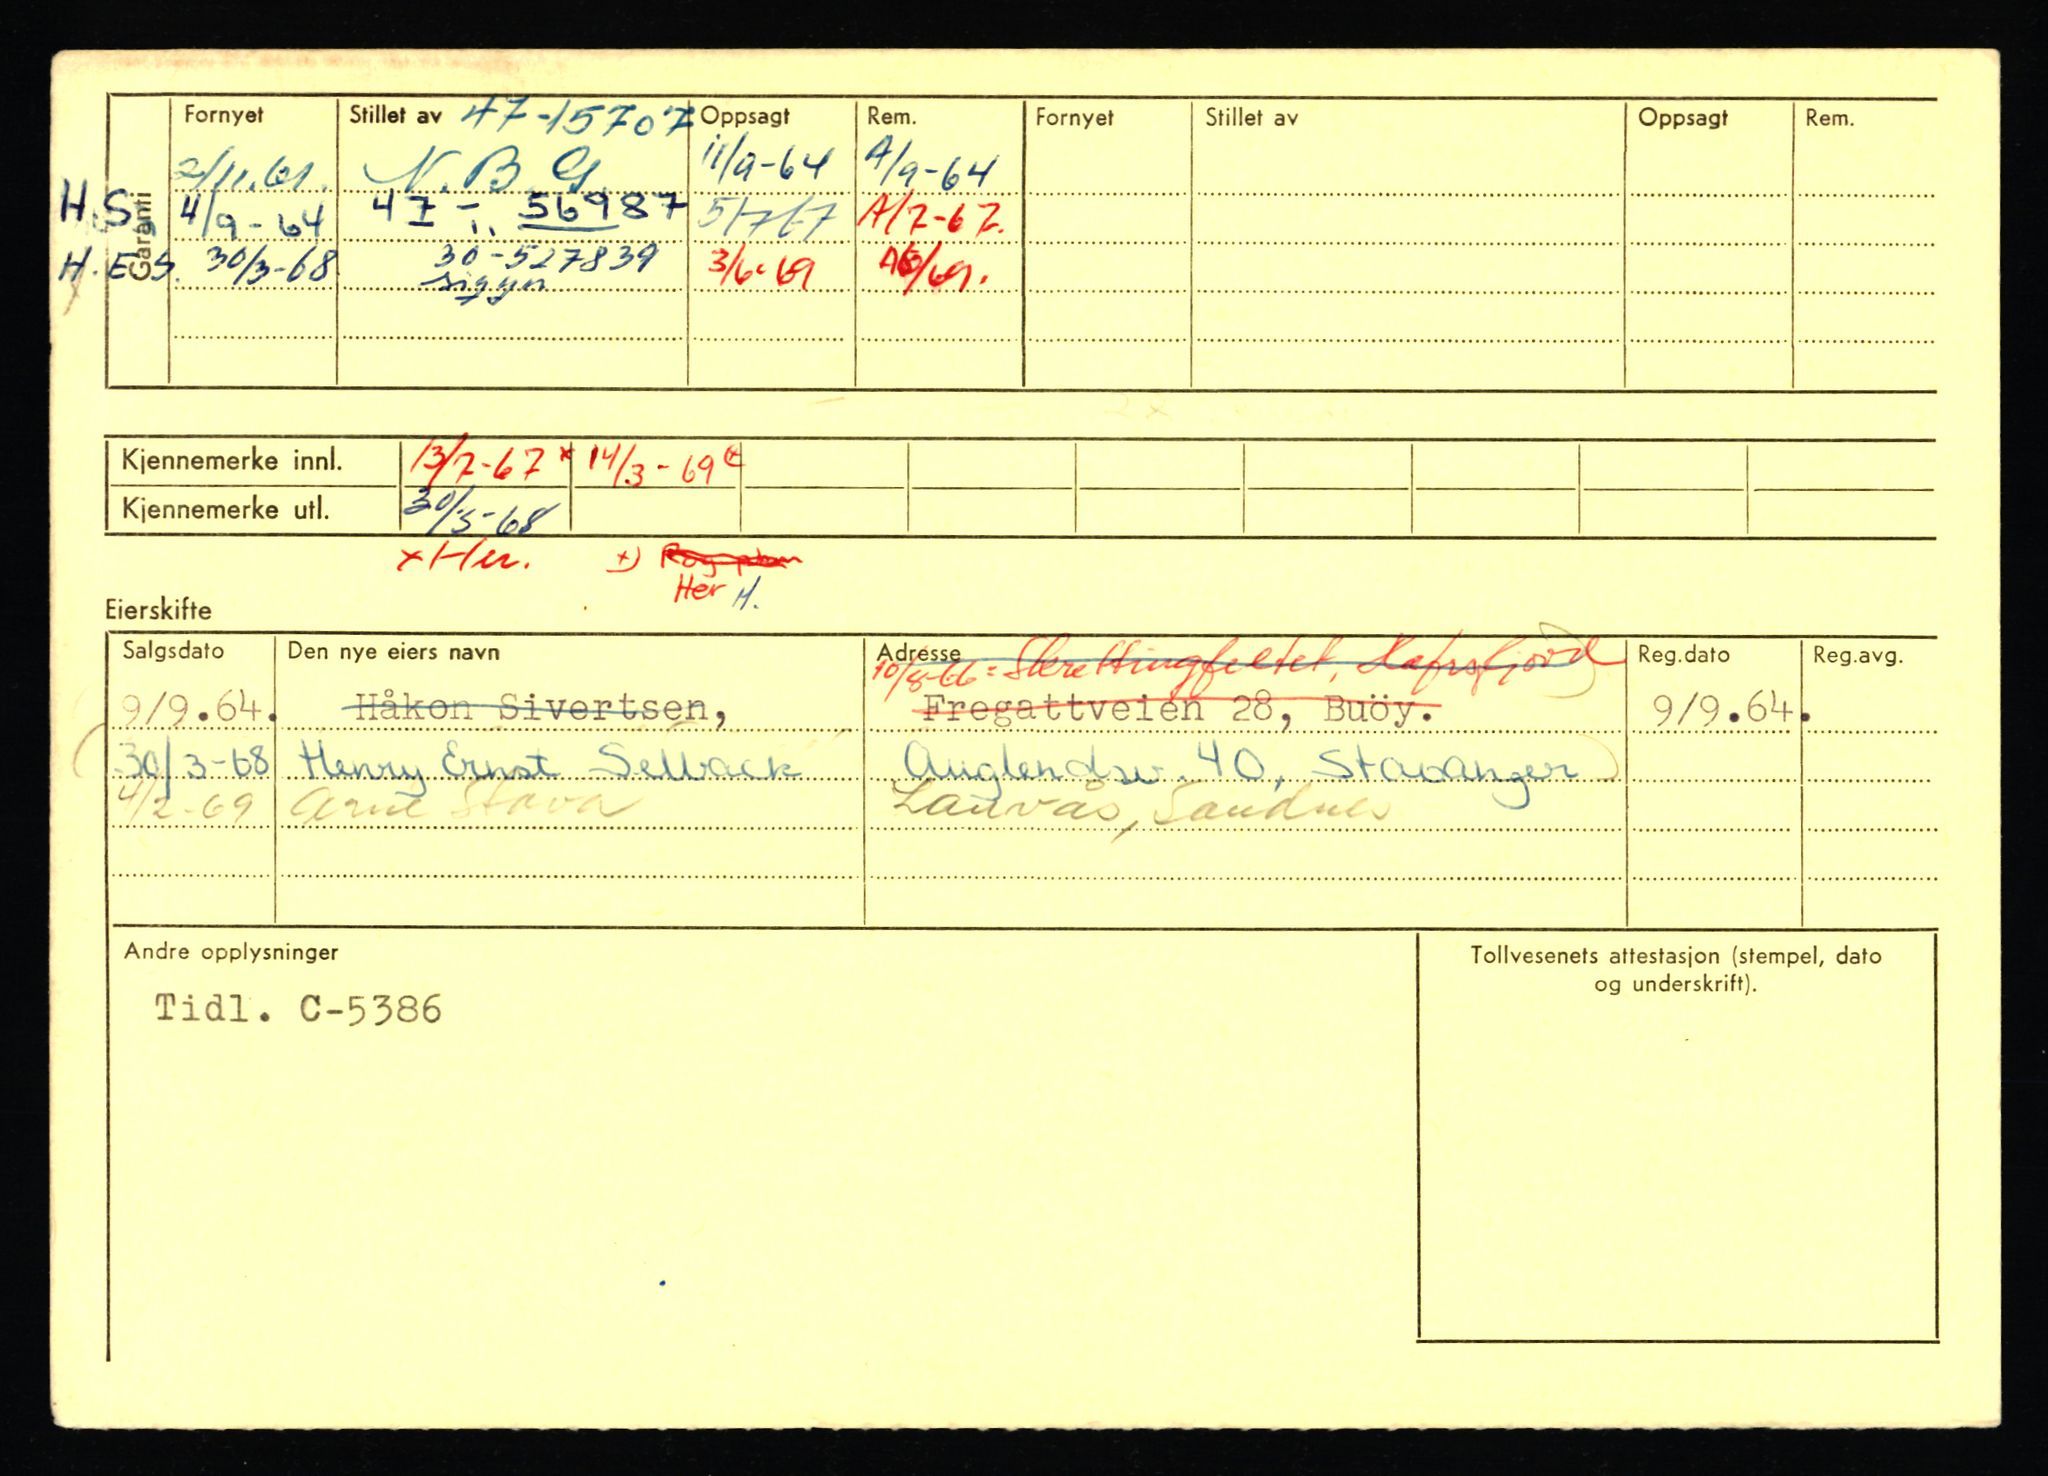 Fornyet Stillet av 47-15707 Oppsagt Rem. Fornyet Stillet av Oppsagt Rem.
Garanti
2/11.61. N.B.G. 11/9-64 A/9-64
H.S. 4/9-64 47 - 56987 5/7/67 A/7-67.
H.E.S. 30/3-68 30-527839 3/6-69 A6/69.
sigyn
Kjennemerke innl. 13/7-67 x 14/3-69
Kjennemerke utl. 30/3-68
x Her. x)
Her H.
Eierskifte
Salgsdato Den nye eiers navn Adresse Reg.dato Reg.avg.
10/8-66 = Skrettingfeltet, Hafrsfjord
9/9.64. Håkon Sivertsen, Fregattveien 28, Buöy. 9/9.64.
30/3-68 Henry Ernst Selback Auglendsv. 40, Stavanger
4/2-69 Arne Stava Lauvås, Sandnes
Andre opplysninger Tollvesenets attestasjon (stempel, dato
og underskrift).
Tidl. C-5386